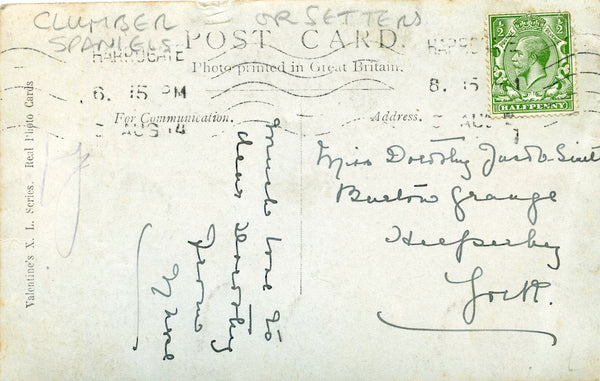 CLUMBER = OR SETTERS
SPANIELS
POST CARD.
Photo printed in Great Britain.
HARROGATE
6. 15 PM
AUG 14
HARROGATE
8. 15
AUG
½ ½
HALFPENNY
For Communication.
Address.
Valentine's X. L. Series. Real Photo Cards
much love to
dear Dorothy
from
Miss Dorothy Jacob Smith
Burton Grange
Helperby
York.